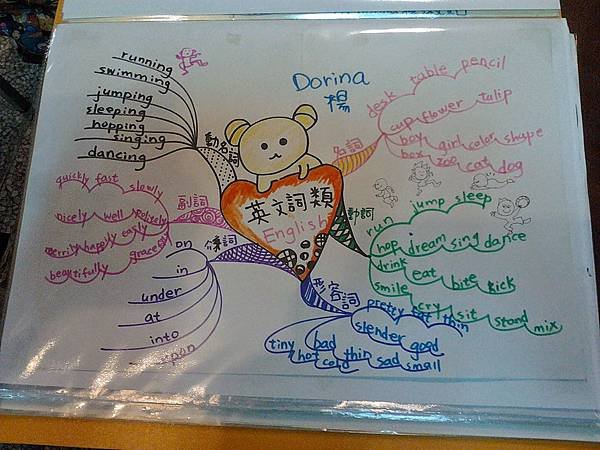 Dorina
楊
英文詞類
English
動名詞
running
swimming
jumping
sleeping
hopping
singing
dancing
名詞
desk table pencil
cup flower tulip
boy girl color shape
box zoo cat dog
動詞
run jump sleep
hop dream sing dance
drink eat bite kick
smile cry sit stand mix
形容詞
pretty fat thin
slender good
tiny bad thin sad small
hot cold
介係詞
on
in
under
at
into
upon
副詞
quickly fast slowly
nicely well politely
merrily happily easily
beautifully gracefully